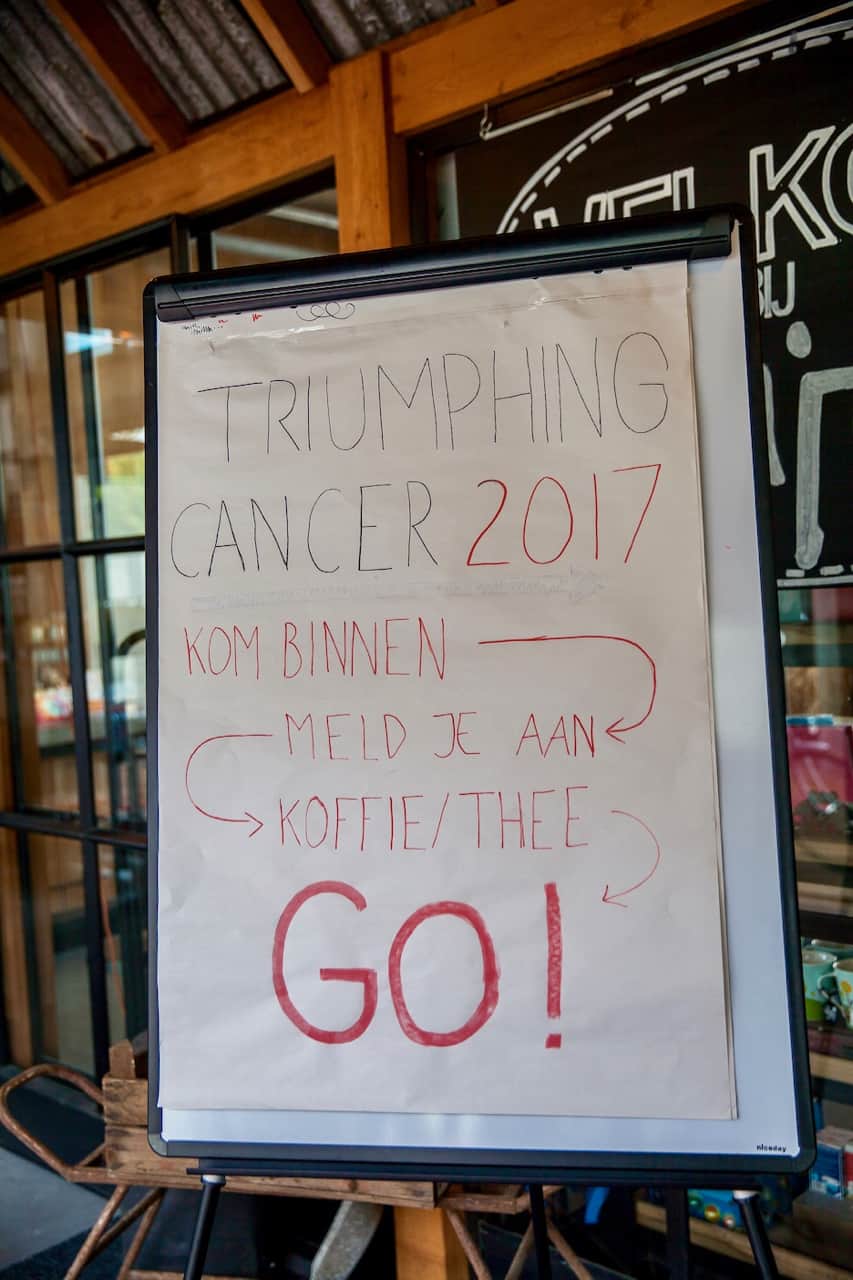 TRIUMPHING
CANCER 2017
KOM BINNEN
MELD JE AAN
KOFFIE/THEE
GO!
niceday